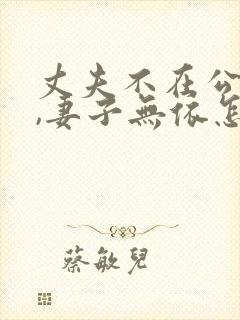 丈夫不在公
,妻子無依怎
蔡敏兒